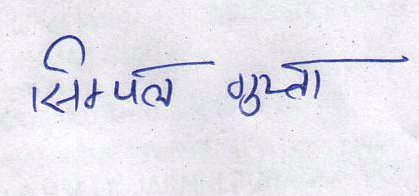 सिम्पल गुप्ता